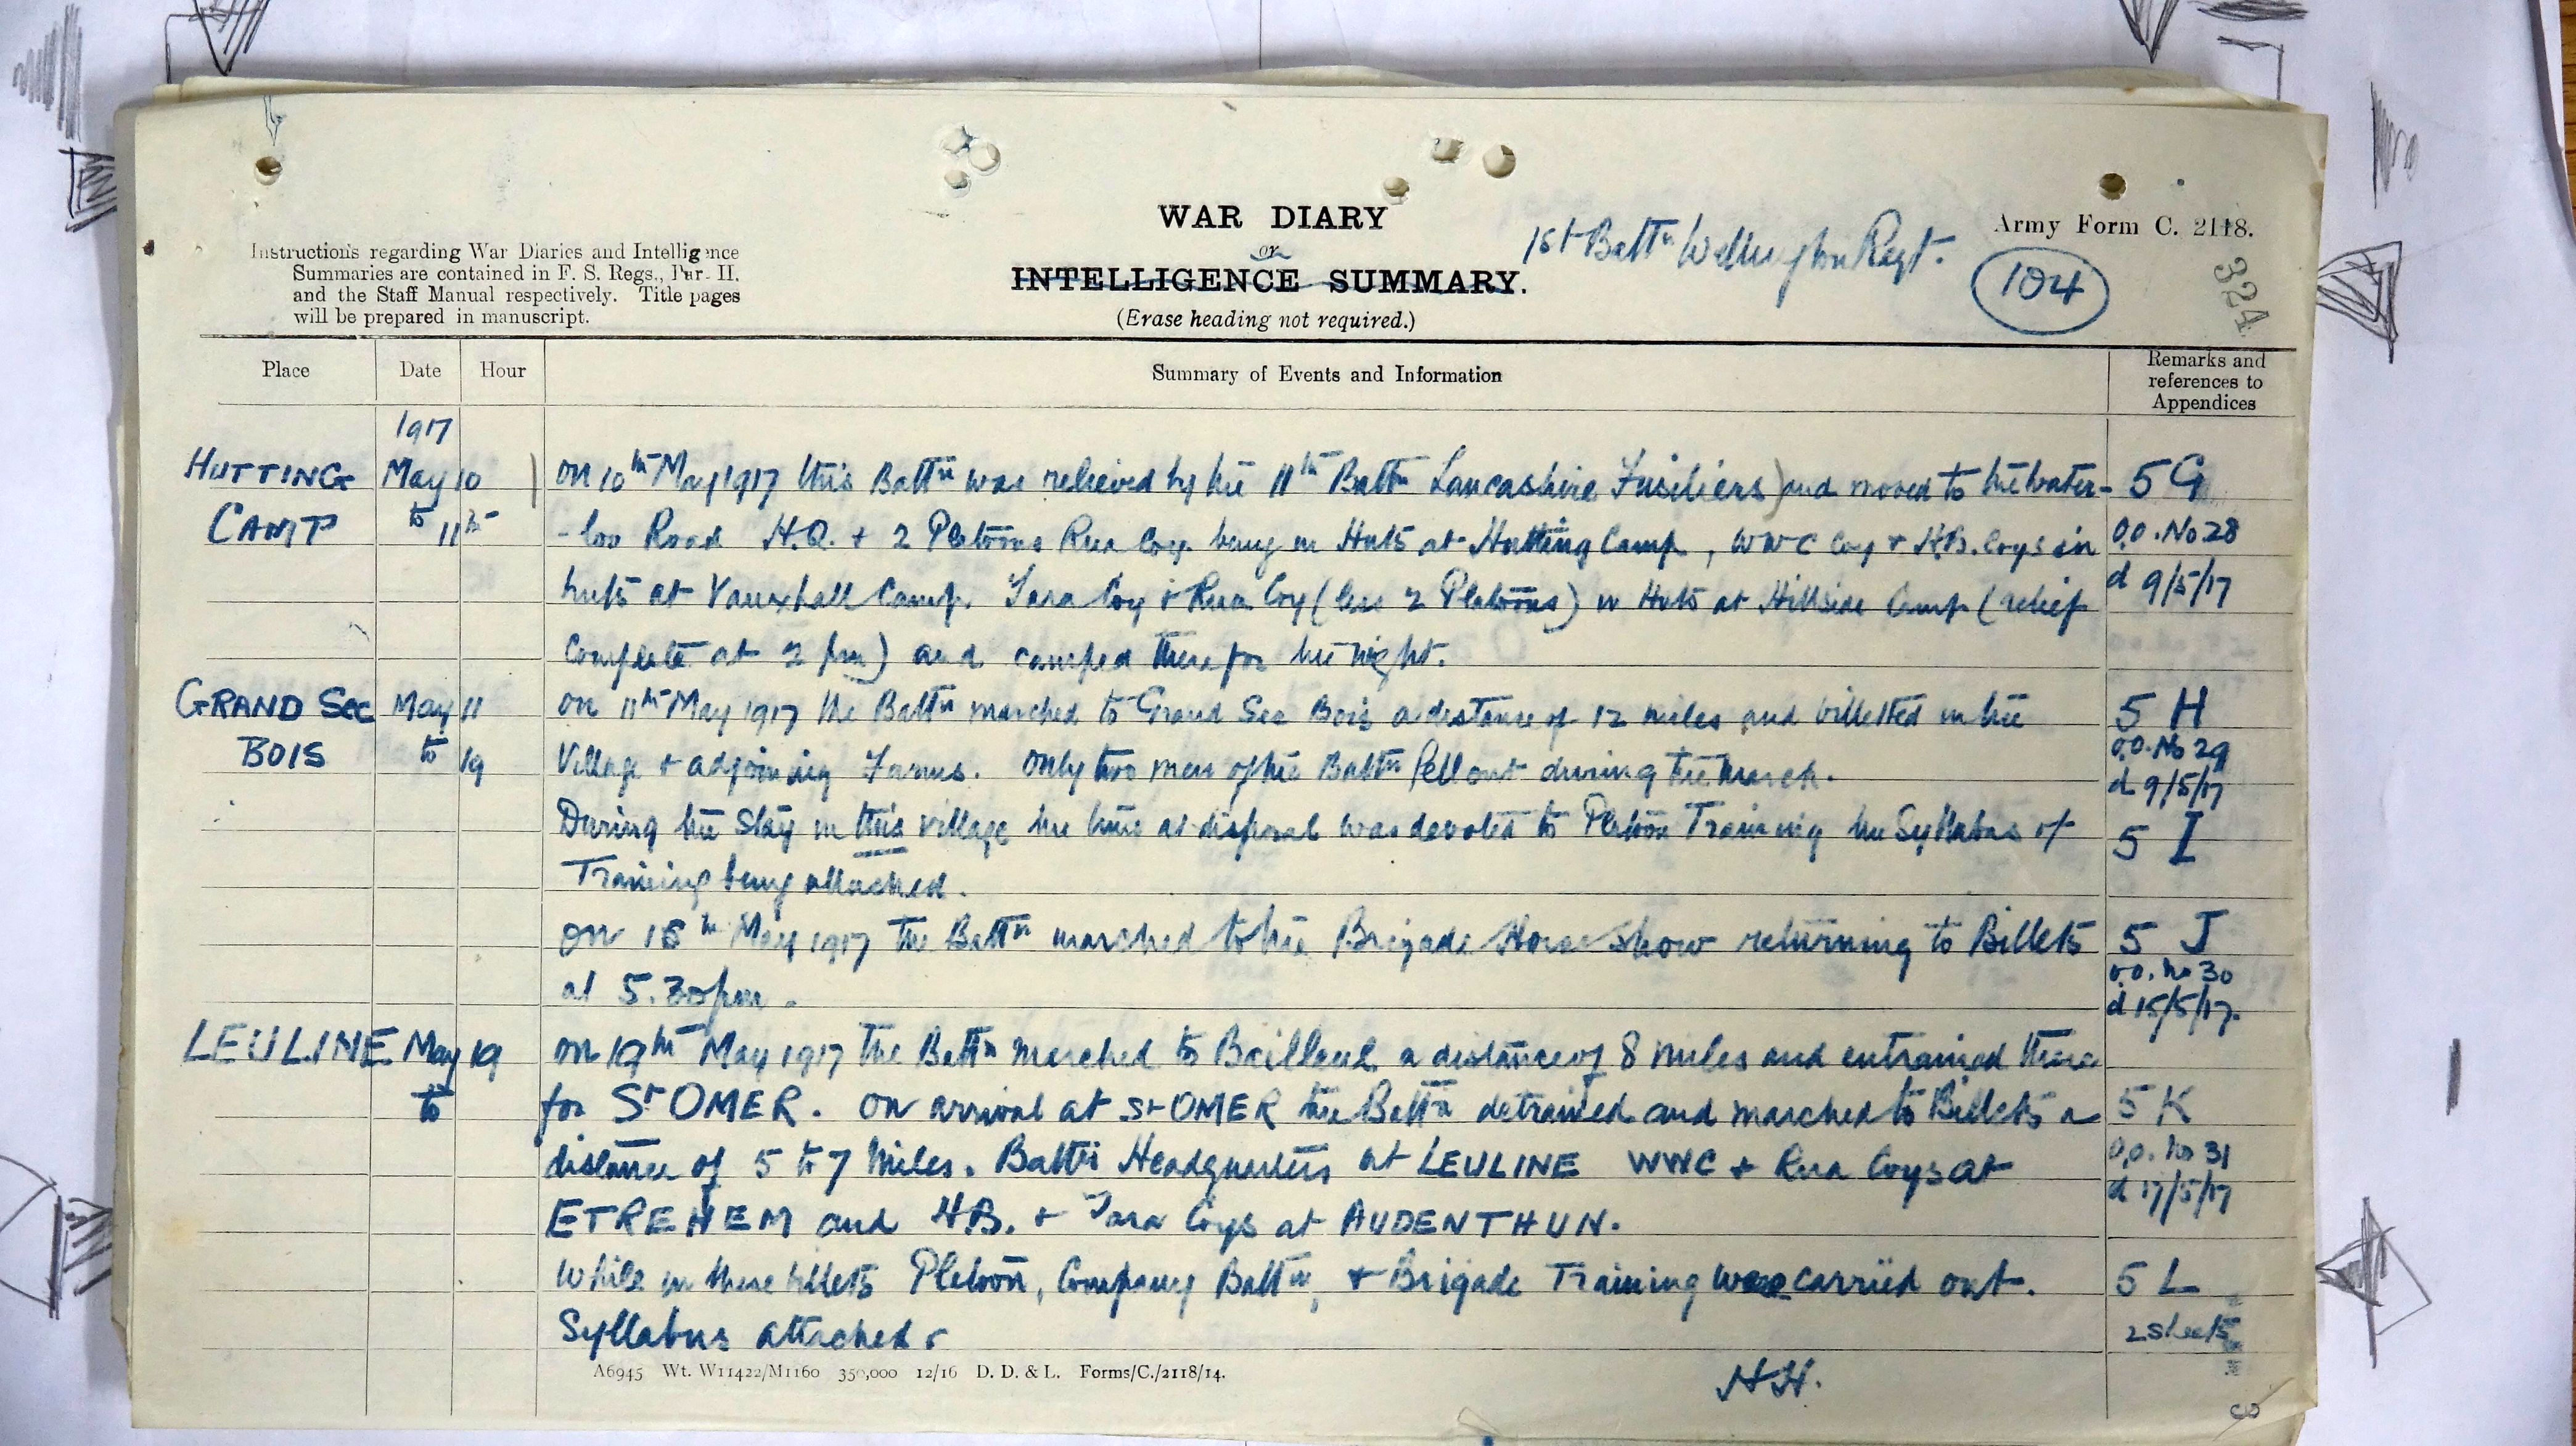 WAR DIARY
or
INTELLIGENCE SUMMARY.
(Erase heading not required.)
1st Battn Wellington Regt.
Army Form C. 2118.
104
324
Instructions regarding War Diaries and Intelligence
Summaries are contained in F. S. Regs., Part II.
and the Staff Manual respectively. Title pages
will be prepared in manuscript.
Place Date Hour Summary of Events and Information Remarks and references to Appendices
1917
HUTTING May 10 on 10th May 1917 this Battn was relieved by the 11th Battn Lancashire Fusiliers) and moved to the Water- 5 G
CAMP to 11th -loo Road H.Q. + 2 Platoons Rua Coy. being in Huts at Hutting Camp, WWC Coy + H.B. Coys in O.O. No 28
huts at Vauxhall Camp. Tara Coy + Rua Coy (less 2 Platoons) in Huts at Hillside Camp (relief d 9/5/17
complete at 2 pm) and camped there for the night.
GRAND SEC May 11 on 11th May 1917 the Battn marched to Grand Sec Bois a distance of 12 miles and billetted in the 5 H
BOIS to 19 Village + adjoining Farms. Only two men of the Battn fell out during the march. O.O. No 29
d 9/5/17
During the stay in this village the time at disposal was devoted to Platoon Training the Syllabus of 5 I
Training being attached.
On 18th May 1917 the Battn marched to the Brigade Horse Show returning to Billets 5 J
at 5.30pm. O.O. No 30
d 15/5/17.
LEULINE May 19 on 19th May 1917 the Battn marched to Bailleul a distance of 8 miles and entrained there
to for St OMER. On arrival at St OMER the Battn detrained and marched to Billets a 5 K
distance of 5 to 7 Miles. Battn Headquarters at LEULINE WWC + Rua Coys at O.O. No 31
d 17/5/17
ETREHEM and H.B. + Tara Coys at AUDENTHUN.
While in these billets Platoon, Company Battn, + Brigade Training was carried out. 5 L
Syllabus attached. 2 sheets
A6945 Wt. W11422/M1160 350,000 12/16 D. D. & L. Forms/C./2118/14.
H.H.